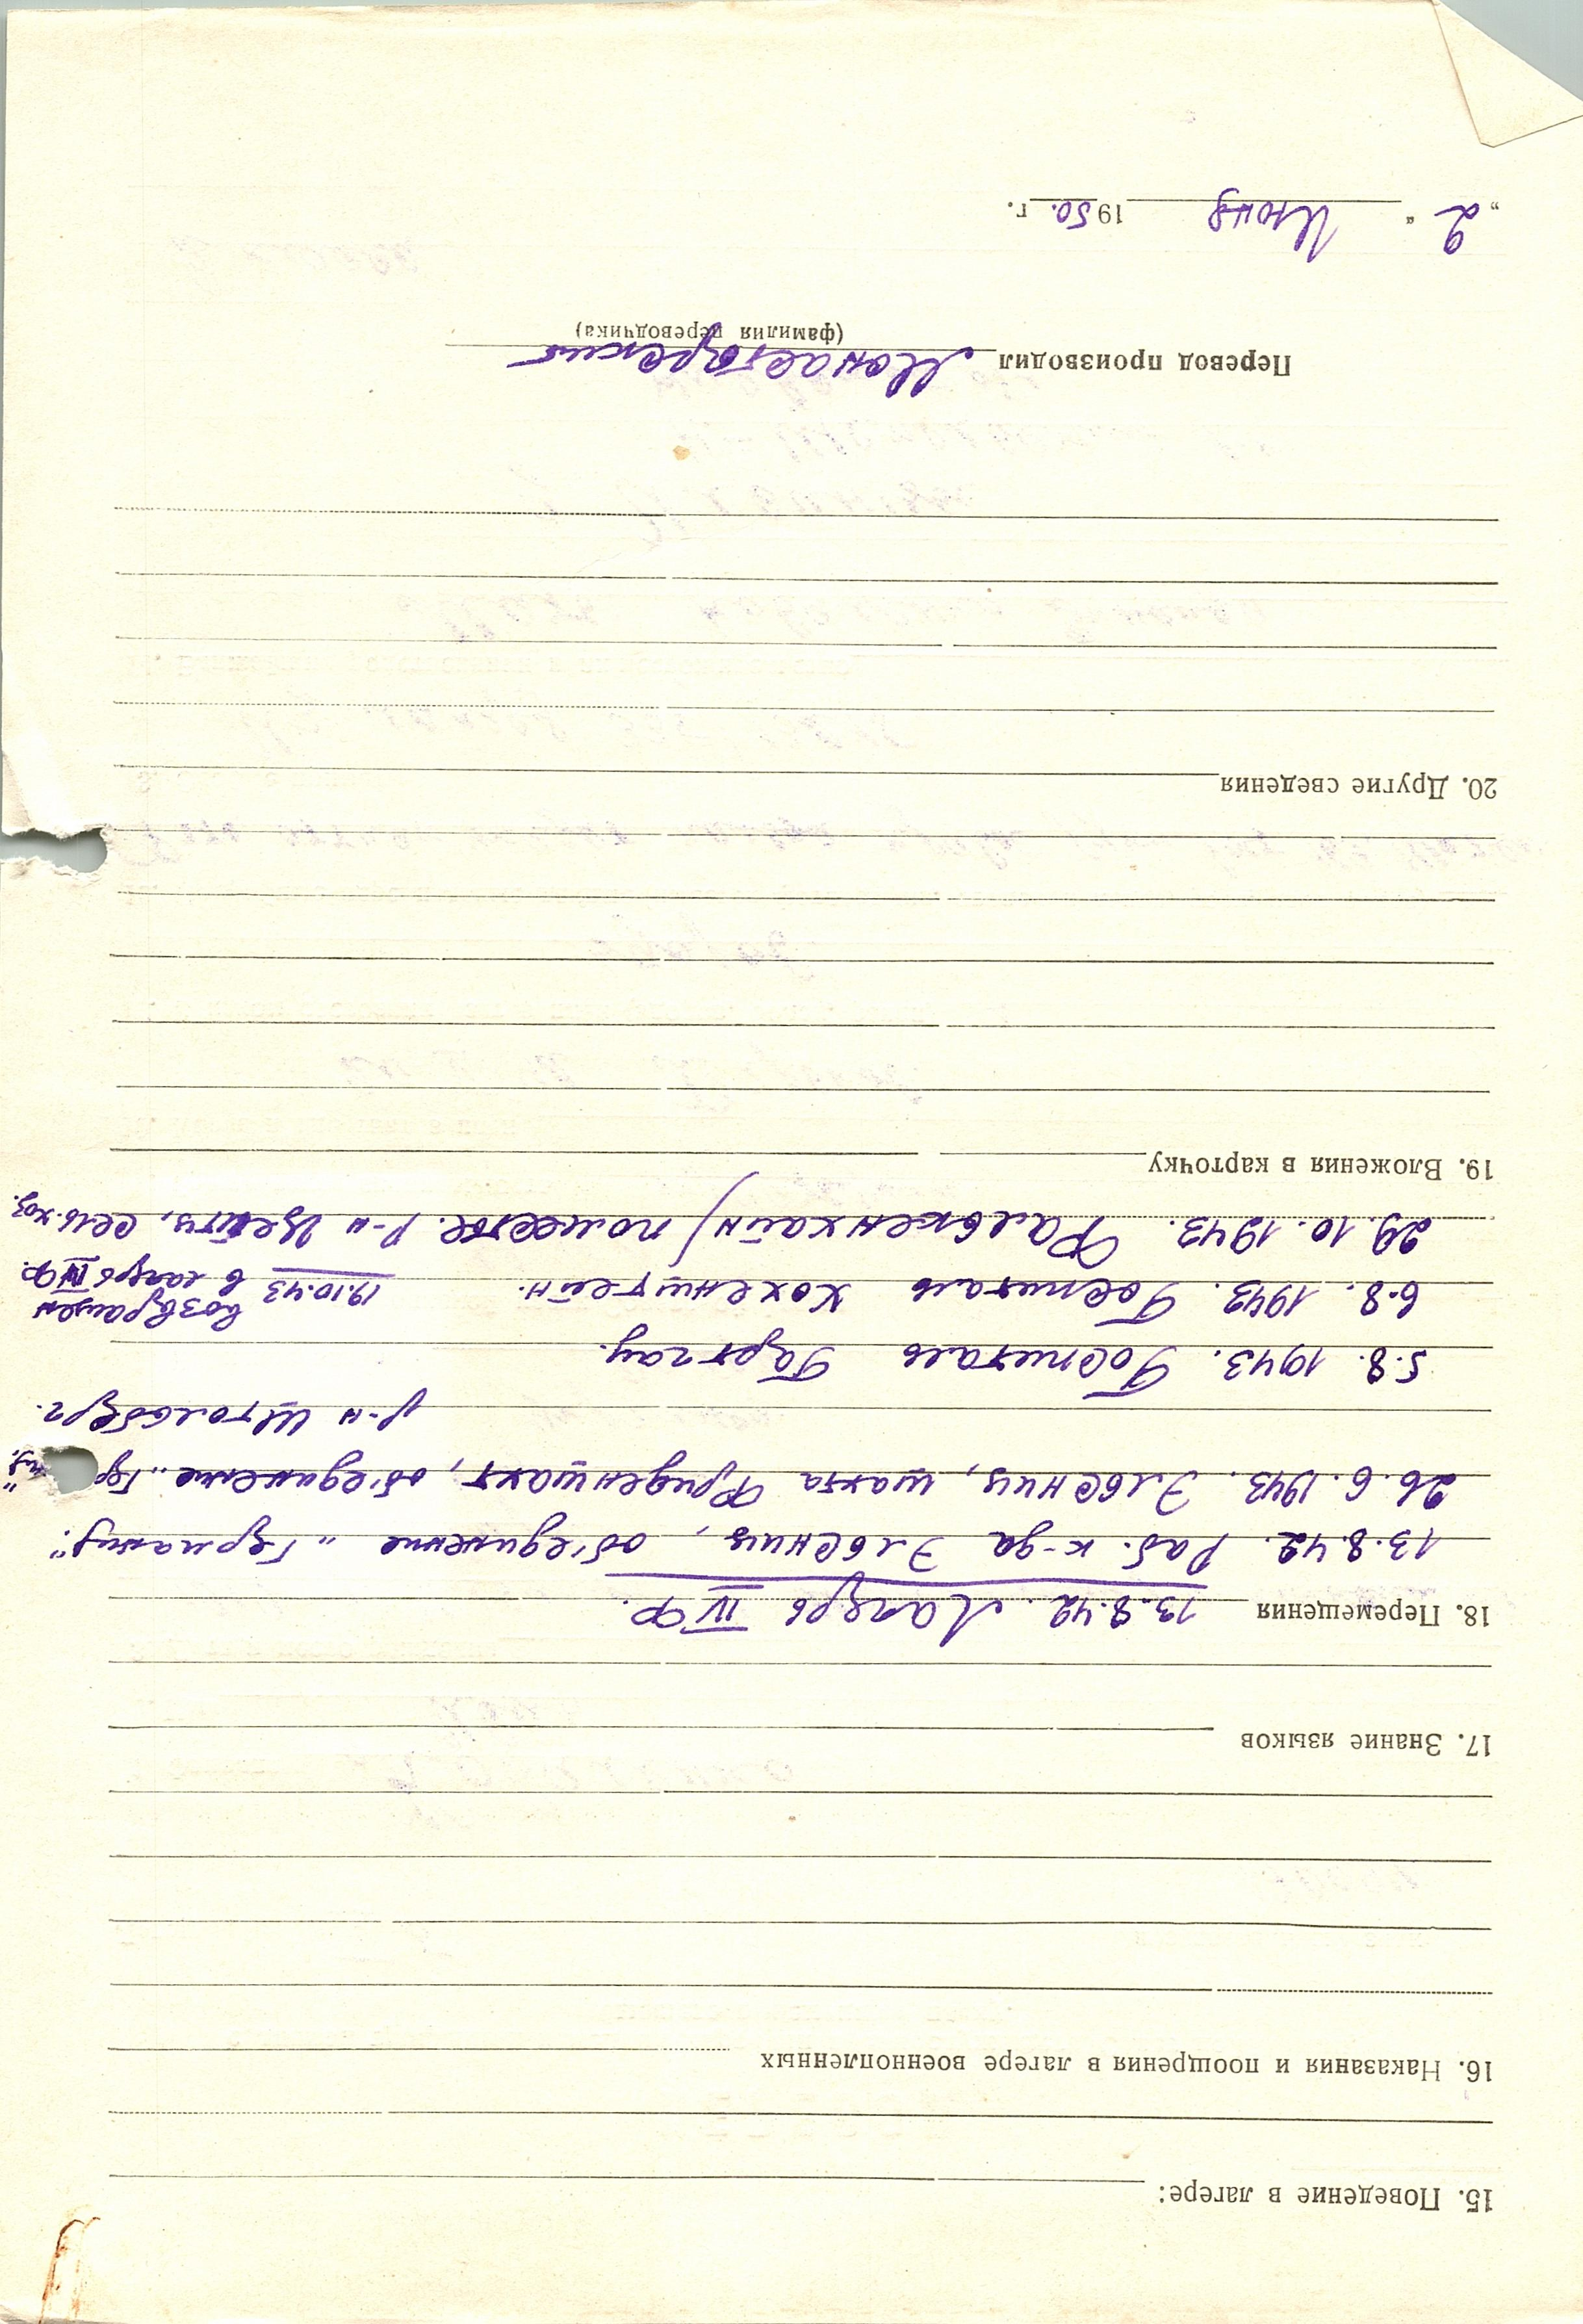 15. Поведение в лагере:
16. Наказания и поощрения в лагере военнопленных
17. Знание языков
18. Перемещения 13.8.42. Лагерь IV Ф.
13.8.42. Раб. к-да Эльсниц, об'единение „Германия“.
26.6.1943. Эльсниц, шахта Фриденшахт, об'единение „Гер ния“,
р-н Штольберг.
5.8.1943. Госпиталь Гартгау.
6.8.1943. Госпиталь Хохенштейн. 19.10.43 возвращен
в лагерь IV Ф.
29.10.1943. Фалькенхайн/поместье. р-н Цейтц, сель.хоз.
19. Вложения в карточку
20. Другие сведения
Перевод производил Монастырский
(фамилия переводчика)
„2“ Июня 1950. г.